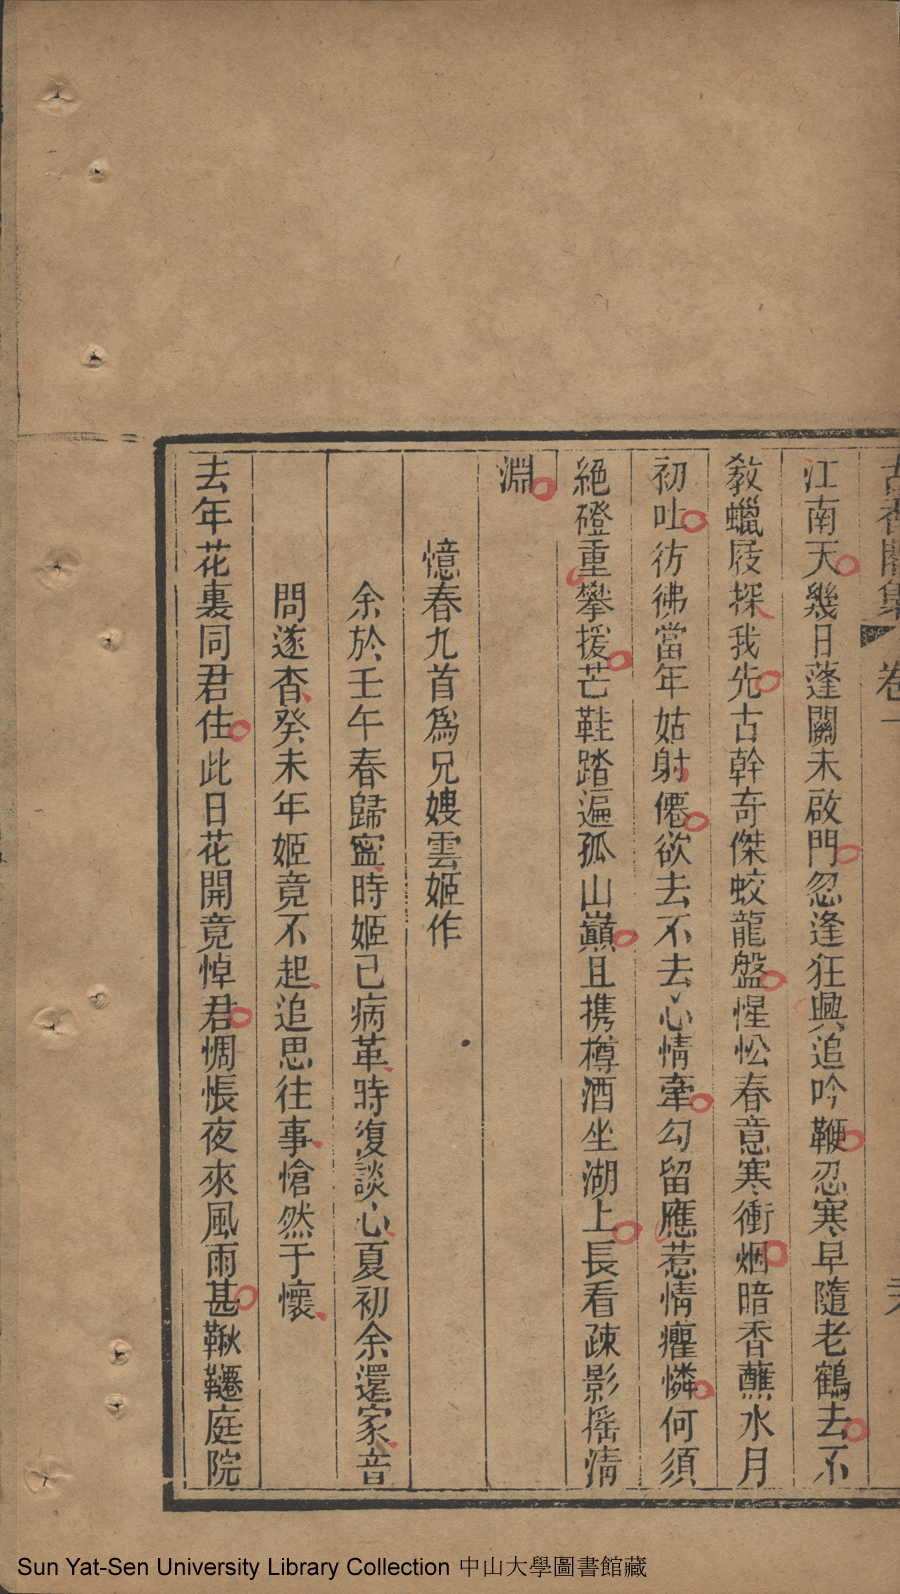 古香閣集 卷一
江南天幾日蓬關未啟門忽逢狂興追吟鞭忍寒早隨老鶴去不
教蠟屐探我先古幹奇傑蛟龍盤惺忪春意寒衝烟暗香蘸水月
初吐彷彿當年姑射僊欲去不去心情牽勾留應惹情癯憐何須
絕磴重攀援芒鞋踏遍孤山巔且携樽酒坐湖上長看疎影搖清
淵
憶春九首爲兄嫂雲姬作
余於壬午春歸寧時姬已病革時復談心夏初余還家音
問遂杳癸未年姬竟不起追思往事愴然于懷
去年花裏同君住此日花開竟悼君惆悵夜來風雨甚鞦韆庭院
Sun Yat-Sen University Library Collection 中山大學圖書館藏